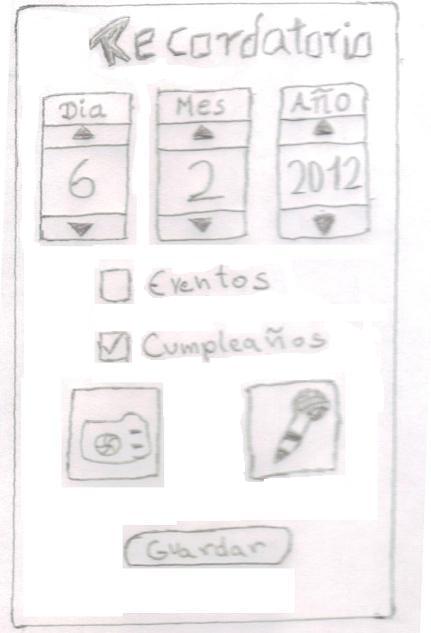 Recordatorio
Dia Mes Año
6 2 2012
Eventos
Cumpleaños
Guardar